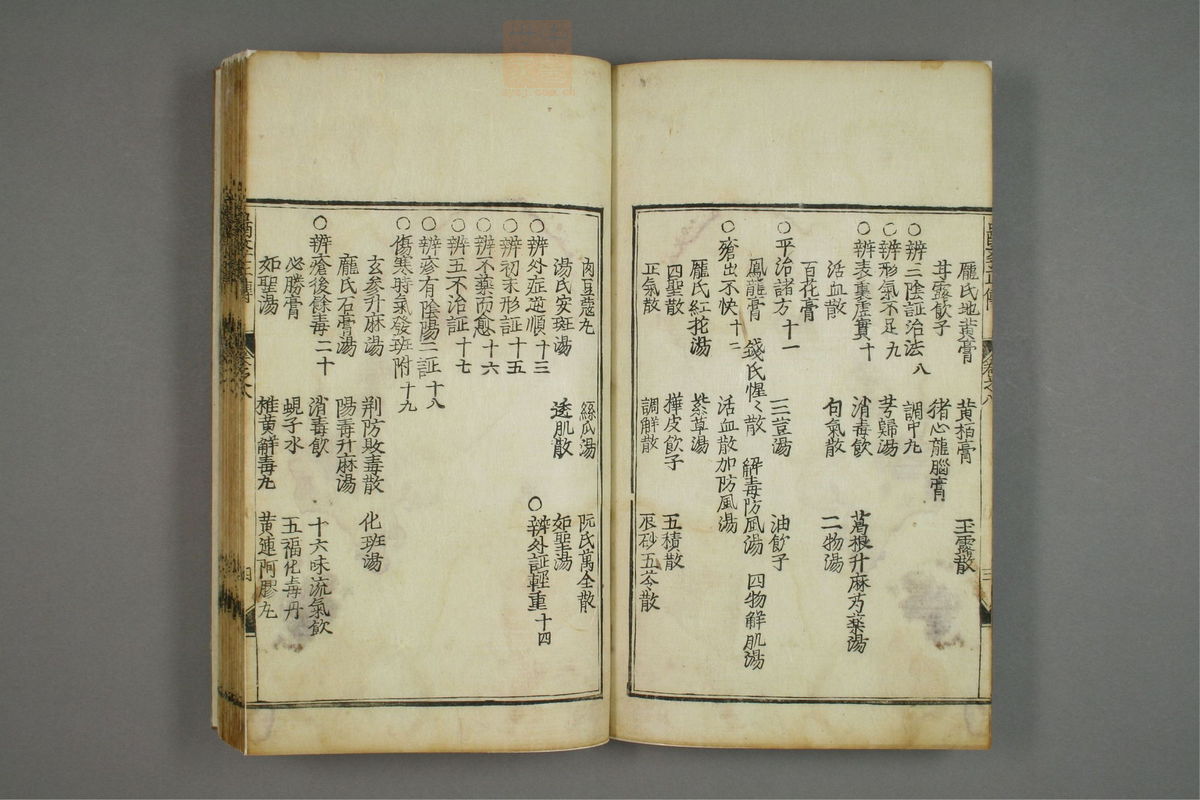 龐氏地黃膏 黃柏膏 玉露散
甘露飲子 猪心龍腦膏
○辨三陰証治法八 調中丸
○辨形氣不足九 芎歸湯
○辨表裏虛實十 消毒飲 葛根升麻芍藥湯
活血散 匀氣散 二物湯
百花膏
○平治諸方十一 三豆湯 油飲子
鳳龍膏 錢氏惺々散 解毒防風湯 四物解肌湯
○瘡出不快十二 活血散加防風湯
龐氏紅花湯 紫草湯
四聖散 樺皮飲子 五積散
正氣散 調解散 辰砂五苓散
肉豆蔻丸 絲瓜湯 阮氏萬全散
湯氏安斑湯 透肌散 如聖湯
○辨外症逆順十三 ○辨外証輕重十四
○辨初末形証十五
○辨不藥而愈十六
○辨五不治証十七
○辨疹有陰陽二証十八
○傷寒時氣發斑附十九
玄參升麻湯 荆防敗毒散 化斑湯
龐氏石膏湯 陽毒升麻湯
○辨瘡後餘毒二十 消毒飲 十六味流氣飲
必勝膏 蜆子水 五福化毒丹
如聖湯 雄黃解毒丸 黃連阿膠丸
卷之八